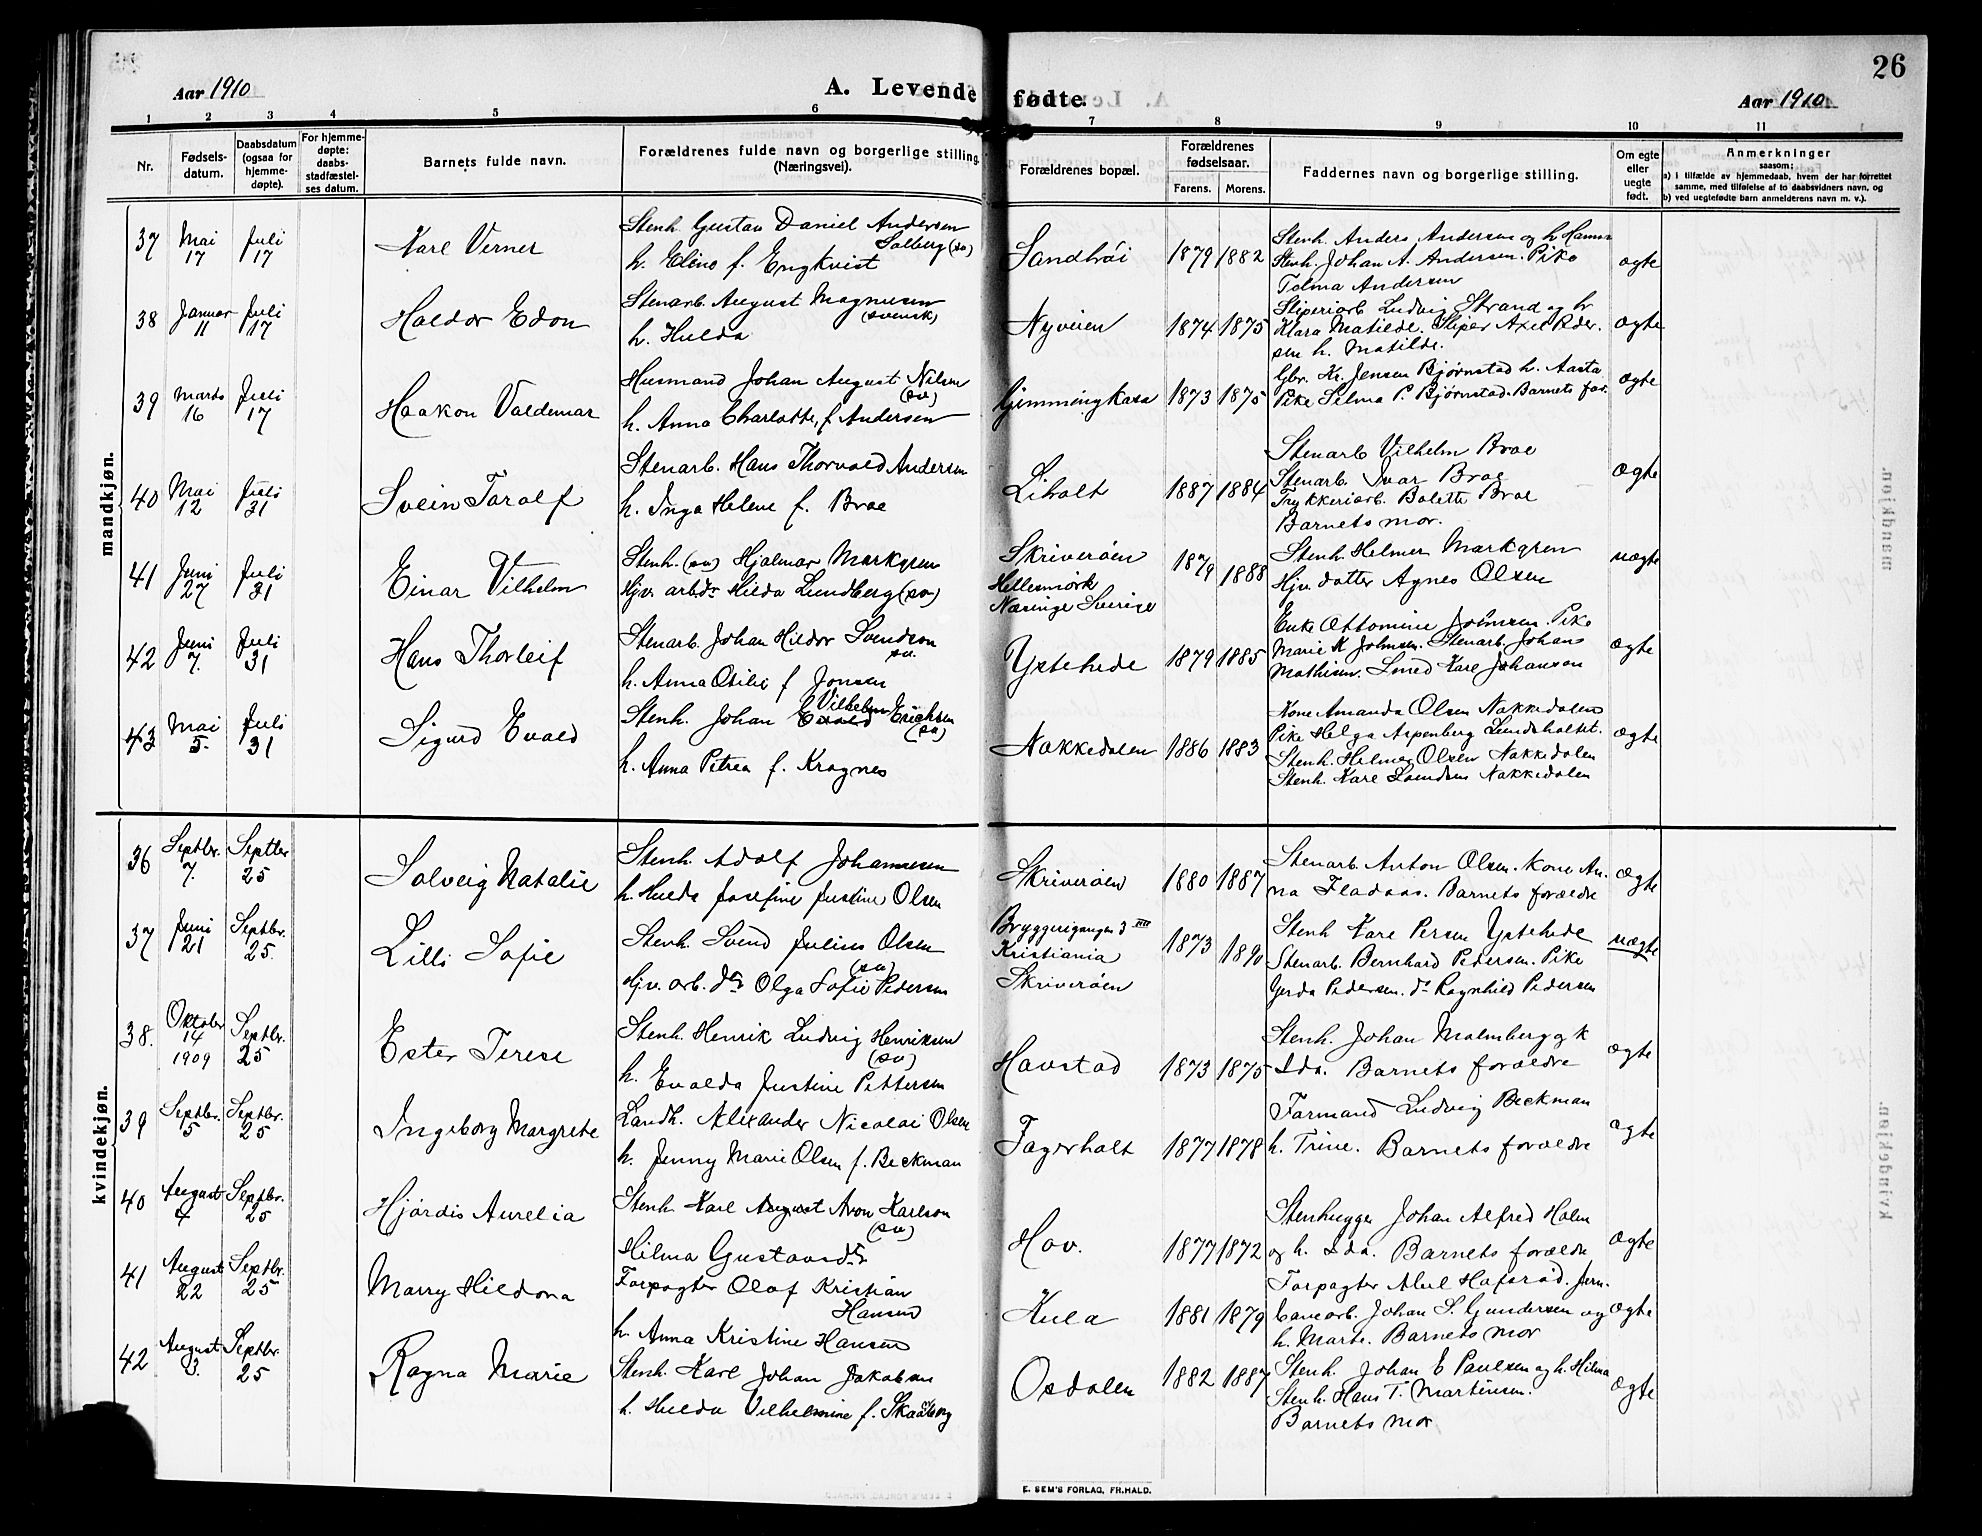 26
Aar 1910
A. Levende fødte.
Aar 1910
1 2 3 4 5 6 7 8 9 10 11
Nr.
Fødsels-
datum.
Daabsdatum
(ogsaa for
hjemme-
døpte).
For hjemme-
døpte:
daabs-
stadfæstel-
ses datum.
Barnets fulde navn.
Forældrenes fulde navn og borgerlige stilling.
(Næringsvei).
Forældrenes bopæl.
Forældrenes
fødselsaar.
Farens. Morens.
Faddernes navn og borgerlige stilling.
Om egte
eller
uegte
født.
Anmerkninger
saasom:
a) i tilfælde av hjemmedaab, hvem der har forrettet
samme, med tilføielse af to daabsvidners navn, og
b) ved uegtefødte barn anmelderens navn m. v.).
mandkjøn.
37
Mai
17
Juli
17
Karl Verner
Stenh. Gustav Daniel Andersen
Solberg (sv)
h. Eline f. Engkvist
Sandhøi
1879 1882
Stenh. Anders Andersen og h. Hanna
Stenh. Johan A. Andersen. Pike
Tolma Andersen
ægte
38
Januar
11
Juli
17
Haldor Edon
Stenarb. August Magnusen
(svensk)
h. Hulda
Nyveien
1874 1875
Sliperiarb Ludvig Strand og h
Klara Matilde. Sliper Axel Peder-
sen h. Matilde.
ægte
39
Marts
16
Juli
17
Haakon Valdemar
Husmand Johan August Nilsen
(sv)
h. Anna Charlotte, f. Andersen
Gimmingkasa
1873 1875
Gbr. Kr. Jensen Bjørnstad h. Aasta
Pike Selma P. Bjørnstad. Barnets far.
ægte
40
Mai
12
Juli
31
Svein Taralf
Stenarb. Hans Thorvald Andersen
h. Inga Helene f. Brae
Liholt
1887 1884
Stenarb Vilhelm Brae
Stenarb Ivar Brae
Trykkeriarb. Bolette Brae
Barnets mor.
ægte
41
Juni
27
Juli
31
Einar Vilhelm
Stenh. (sv) Hjalmar Markgren
Hjv. arbds Hilda Lundberg (sv)
Skriverøen
Hellesmörk
Næsinge Sverige
1879 1888
Stenh. Helmer Markgren
Hjv. datter Agnes Olsen
uægte
42
Juni
7.
Juli
31
Hans Thorleif
Stenarb. Johan Hildor Svendsen
sv.
h. Anna Otilie f Jonsen
Ystehede
1879 1885
Enke Ottomine Johnsen. Pike
Marie K Johnsen. Stenarb. Johans
Mathisen. Smed Karl Johansen
ægte
43
Mai
5.
Juli
31
Sigurd Evald
Vilhelm
Stenh. Johan Evald Erichsen
(sv)
h. Anna Petrea f. Kragnes
Nakkedalen
1886 1883
Kone Amanda Olsen Nakkedalen
Pike Helga Aspenberg Lundeholtet.
Stenh. Helmer Olsen Nakkedalen
Stenh. Karl Svendsen Nakkedalen
ægte
kvindekjøn.
36
Septbr.
7.
Septbr
25
Solveig Natalie
Stenh. Adolf Johannesen
h. Hulda Josefine Justine Olsen
Skriverøen
1880 1887
Stenarb. Anton Olsen. Kone An-
na Fladaas. Barnets forældre
ægte
37
Juni
21
Septbr.
25.
Lilli Sofie
Stenh. Svend Julius Olsen
(sv)
Hjv. arb. ds Olga Sofie Pedersen
Bryggerigangen 3 III
Kristiania
Skriverøen
1873 1890
Stenh Karl Persen Ystehede
Stenarb. Bernhard Pedersen. Pike
Gerda Pedersen. ds Ragnhild Pedersen
uægte
38.
Oktober
14
1909
Septbr.
25
Ester Terese
Stenh. Henrik Ludvig Henriksen
(sv)
h. Evalda Justine Pettersen
Havstad
1873 1875
Stenh. Johan Malmberg og k
Ida. Barnets forældre
ægte
39
Septbr.
5
Septbr.
25
Ingeborg Margrete
Landh. Alexander Nicolai Olsen
h. Jenny Marie Olsen f. Beckman
Fagerholt
1877 1878
Farmand Ludvig Beckman
h. Trine. Barnets forældre
ægte
40
August
4
Septbr.
25
Hjørdis Aurelia
Stenh. Karl August Aron Karlson
(sv)
Hilma Gustavsdtr
Hov.
1877 1872
Stenhugger Johan Alfred Holm
og h. Ida. Barnets forældre
ægte
41
August
22
Septbr.
25
Marry Hildona
Forpagter Olaf Kristian
Hansen
h. Anna Kristine Hansen
Kula
1881 1879
Forpagter Abel Hafsröd. Jern-
baneorb. Johan S. Gundersen og
h. Marte. Barnets mor
ægte
42
August
3.
Septbr.
25
Ragna Marie
Stenh. Karl Johan Jakobsen
h. Hulda Vilhelmine f. Skaaberg
Osdalen
1882 1887
Stenh. Johan E Paulsen og h. Hilma
Stenh. Hans T. Martinsen.
Barnets mor
ægte
E. SEM'S FORLAG, FR.HALD.